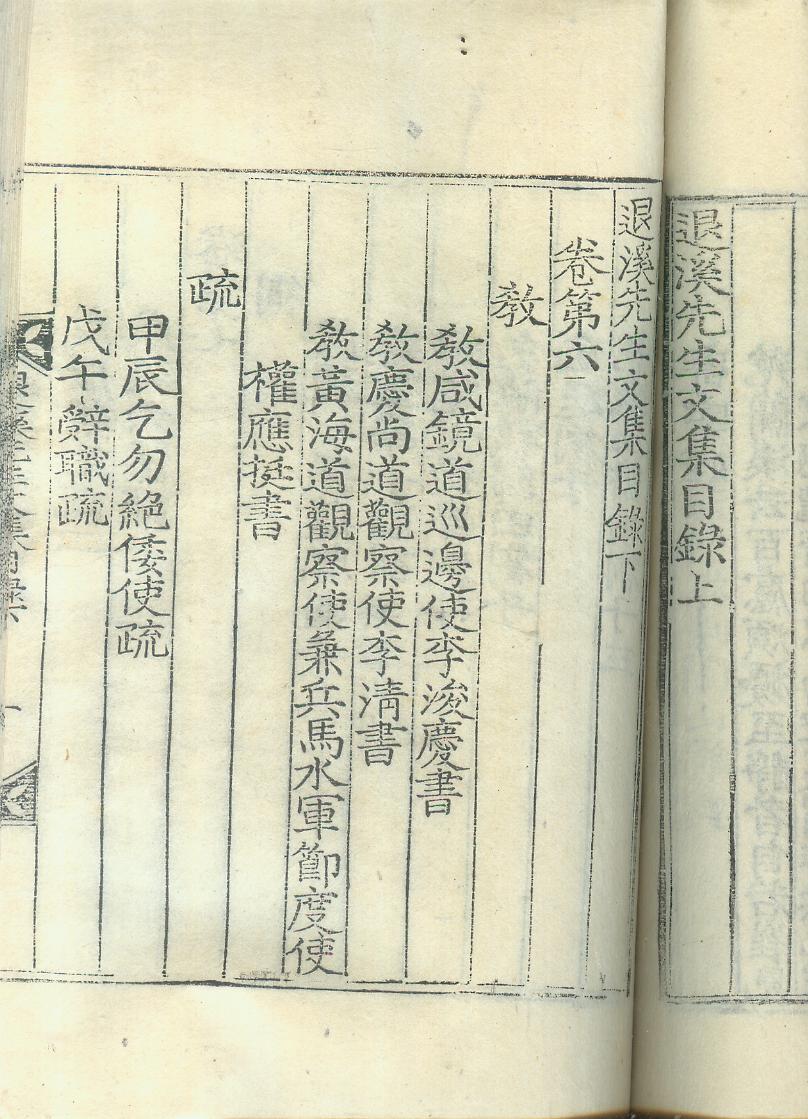 退溪先生文集目錄上
退溪先生文集目錄下
卷第六
敎
敎咸鏡道巡邊使李浚慶書
敎慶尚道觀察使李淸書
敎黃海道觀察使兼兵馬水軍節度使
權應挺書
疏
甲辰乞勿絶倭使疏
戊午辭職疏
退溪先生文集目錄下
一